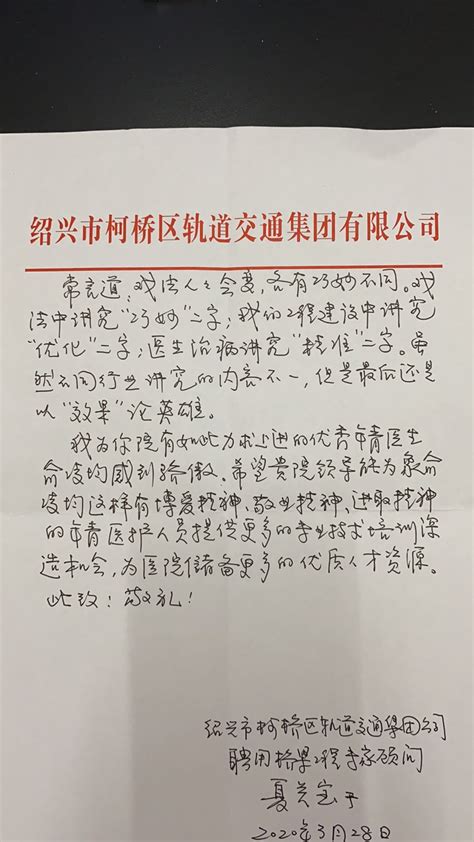 绍兴市柯桥区轨道交通集团有限公司
常言道：戏法人人会变，各有巧妙不同。戏
法中讲究“巧妙”二字；我的工程建设中讲究
“优化”二字；医生治病讲究“精准”二字。虽
然不同行业讲究的内容不一，但是最后还是
以“效果”论英雄。
我为你院有如此力求上进的优秀年青医生
俞凌均感到骄傲。希望贵院领导能为象俞
凌均这样有博爱精神、敬业精神、进取精神
的年青医护人员提供更多的专业技术培训深
造机会，为医院储备更多的优质人才资源。
此致：敬礼！
绍兴市柯桥区轨道交通集团公司
聘用桥梁工程专家顾问
夏
2020年3月28日